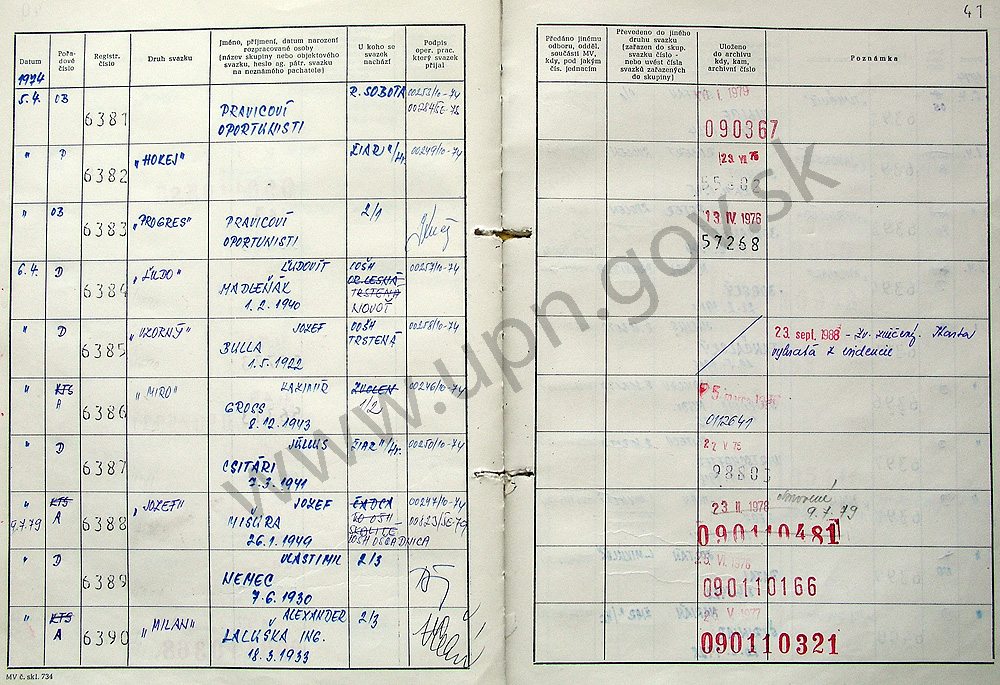 41
Datum
Pořadové číslo
Registr. číslo
Druh svazku
Jméno, příjmení, datum narození
rozpracované osoby
(název skupiny nebo objektového
svazku, heslo ag. pátr. svazku
na neznámého pachatele)
U koho se
svazek
nachází
Podpis
oper. prac.
který svazek
přijal
Předáno jinému
odboru, odděl.
součásti MV,
kdy, pod jakým
čís. jednacím
Převedeno do jiného
druhu svazku
(zařazen do skup.
svazku číslo -
nebo uvést čísla
svazků zařazených
do skupiny)
Uloženo
do archivu
kdy, kam,
archivní číslo
Poznámka
1974
5.4. OB 6381 R. SOBOTA 00253/10-74
PRAVICOVÍ
OPORTUNISTI
1979
090367
" D 6382 "HOKEJ" ŽIAR n/Hr. 00249/10-74
23. VII 76
55302
" OB 6383 "PROGRES" PRAVICOVÍ 2/1
OPORTUNISTI
13. IV. 1976
57268
6.4. D 6384 "ĽUDO" ĽUDOVÍT 00257/10-74
MADLEŇÁK
TRSTENÁ
1.2. 1940 NOVOŤ
" D 6385 "VZORNÝ" JOZEF OOŠH 00258/10-74
BULLA TRSTENÁ
1.5. 1922
23. sept. 1988 - Zv. zničený. Karta
vybratá z evidencie
" KTS A 6386 "MIRO" ZVOLEN 00246/10-74
GROSS 1/2
8.12.1943
012641
" D 6387 JÚLIUS ŽIAR n/Hr. 00250/10-74
CSITÁRI
7.3.1941
22 V 75
98803
" KTS 6388 "JOZEF" JOZEF ČADCA 00247/10-74
9.7.79 A MIŠÚRA
26.1.1949 OOŠH OŠČADNICA
23. II. 1978
9.7.79
090110481
" D 6389 VLASTIMIL 2/3
NEMEC
7.6.1930
VI. 1976
090110166
" KTS A 6390 "MILAN" ALEXANDER 2/3
LALUŠKA ING.
18.3.1933
V. 1977
090110321
MV č. skl. 734
www.upn.gov.sk